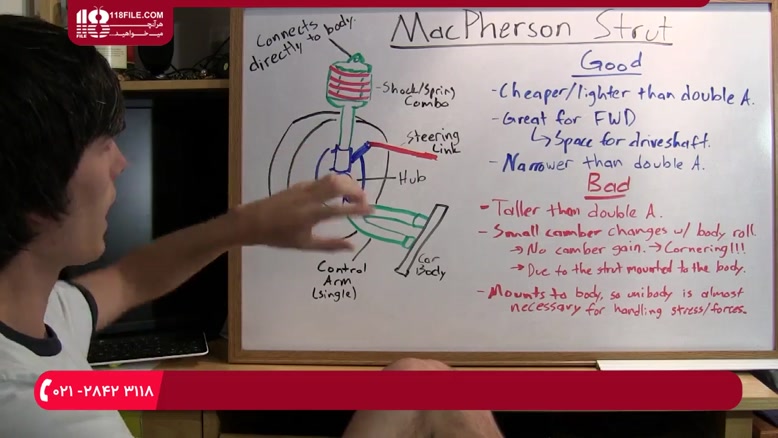 118FILE.COM
هرآنچه
می‌خواهید...
118
FILE
MacPherson Strut
Connects
directly to body.
Shock/Spring
Combo
Steering
Link
Hub
Control
Arm
(single)
Car
Body
Good
- Cheaper/lighter than double A.
- Great for FWD
↳ Space for driveshaft.
- Narrower than double A.
Bad
- Taller than double A.
- Small camber changes w/ body roll
→ No camber gain. → Cornering!!!
→ Due to the strut mounted to the body.
- Mounts to body, so unibody is almost
necessary for handling stress/forces.
۰۲۱-۲۸۴۲ ۳۱۱۸